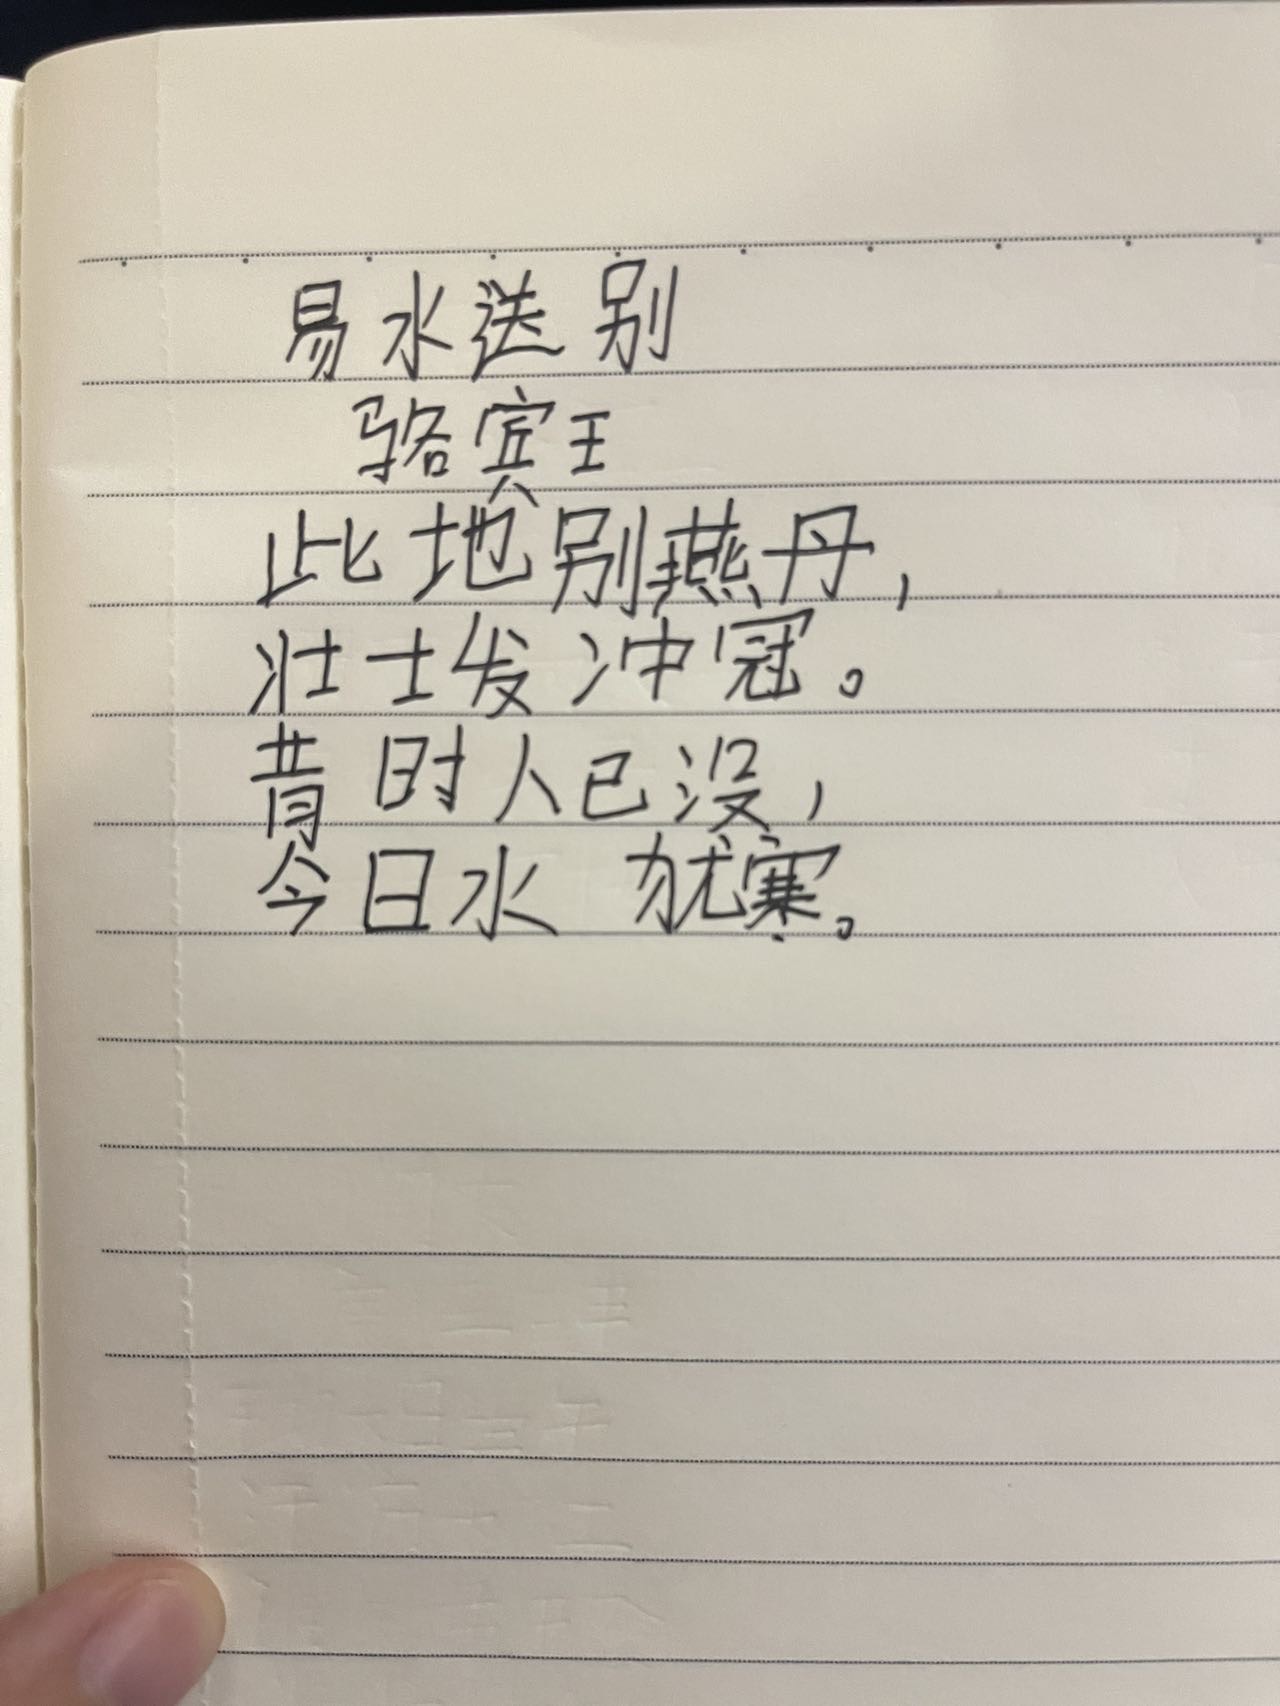 易水送别
骆宾王
此地别燕丹，
壮士发冲冠。
昔时人已没，
今日水犹寒。